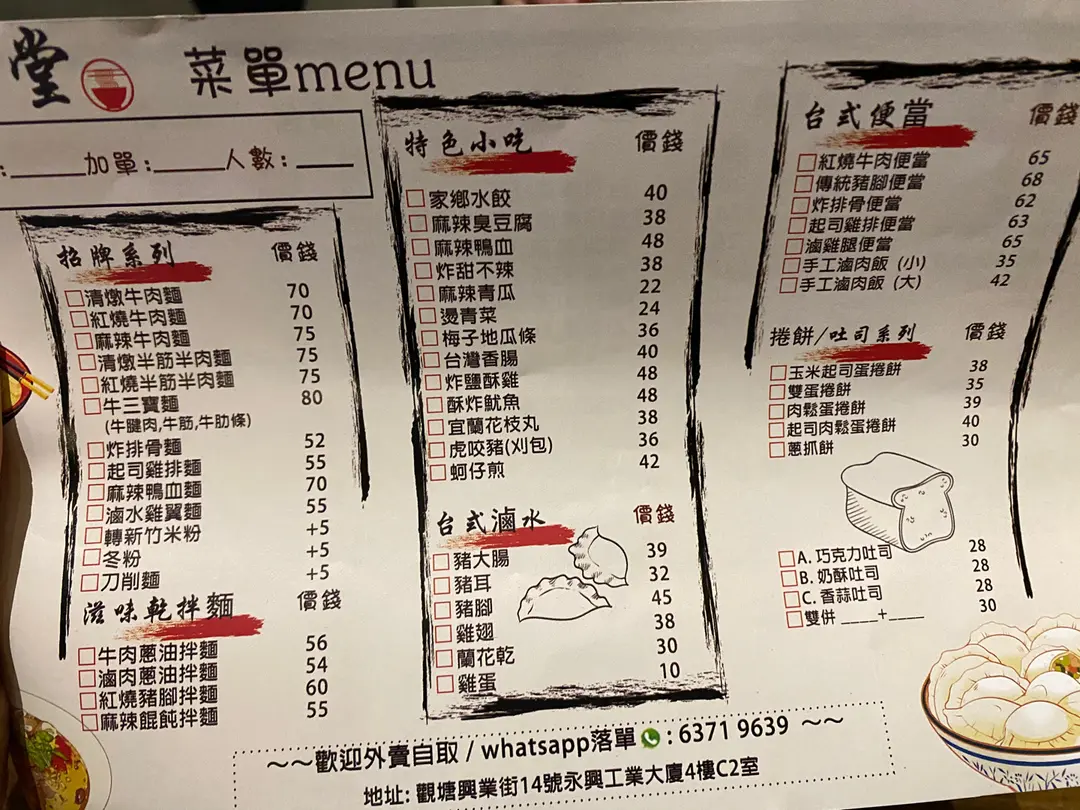 堂 菜單menu
:_____加單:_____人數:_____
招牌系列 價錢
清燉牛肉麵 70
紅燒牛肉麵 70
麻辣牛肉麵 75
清燉半筋半肉麵 75
紅燒半筋半肉麵 75
牛三寶麵 80
(牛腱肉,牛筋,牛肋條)
炸排骨麵 52
起司雞排麵 55
麻辣鴨血麵 70
滷水雞翼麵 55
轉新竹米粉 +5
冬粉 +5
刀削麵 +5
滋味乾拌麵 價錢
牛肉蔥油拌麵 56
滷肉蔥油拌麵 54
紅燒豬腳拌麵 60
麻辣餛飩拌麵 55
特色小吃 價錢
家鄉水餃 40
麻辣臭豆腐 38
麻辣鴨血 48
炸甜不辣 38
麻辣青瓜 22
燙青菜 24
梅子地瓜條 36
台灣香腸 40
炸鹽酥雞 48
酥炸魷魚 48
宜蘭花枝丸 38
虎咬豬(刈包) 36
蚵仔煎 42
台式滷水 價錢
豬大腸 39
豬耳 32
豬腳 45
雞翅 38
蘭花乾 30
雞蛋 10
台式便當 價錢
紅燒牛肉便當 65
傳統豬腳便當 68
炸排骨便當 62
起司雞排便當 63
滷雞腿便當 65
手工滷肉飯 (小) 35
手工滷肉飯 (大) 42
捲餅/吐司系列 價錢
玉米起司蛋捲餅 38
雙蛋捲餅 35
肉鬆蛋捲餅 39
起司肉鬆蛋捲餅 40
蔥抓餅 30
A. 巧克力吐司 28
B. 奶酥吐司 28
C. 香蒜吐司 28
雙併 ____+____ 30
~~歡迎外賣自取 / whatsapp落單 : 6371 9639 ~~
地址: 觀塘興業街14號永興工業大廈4樓C2室